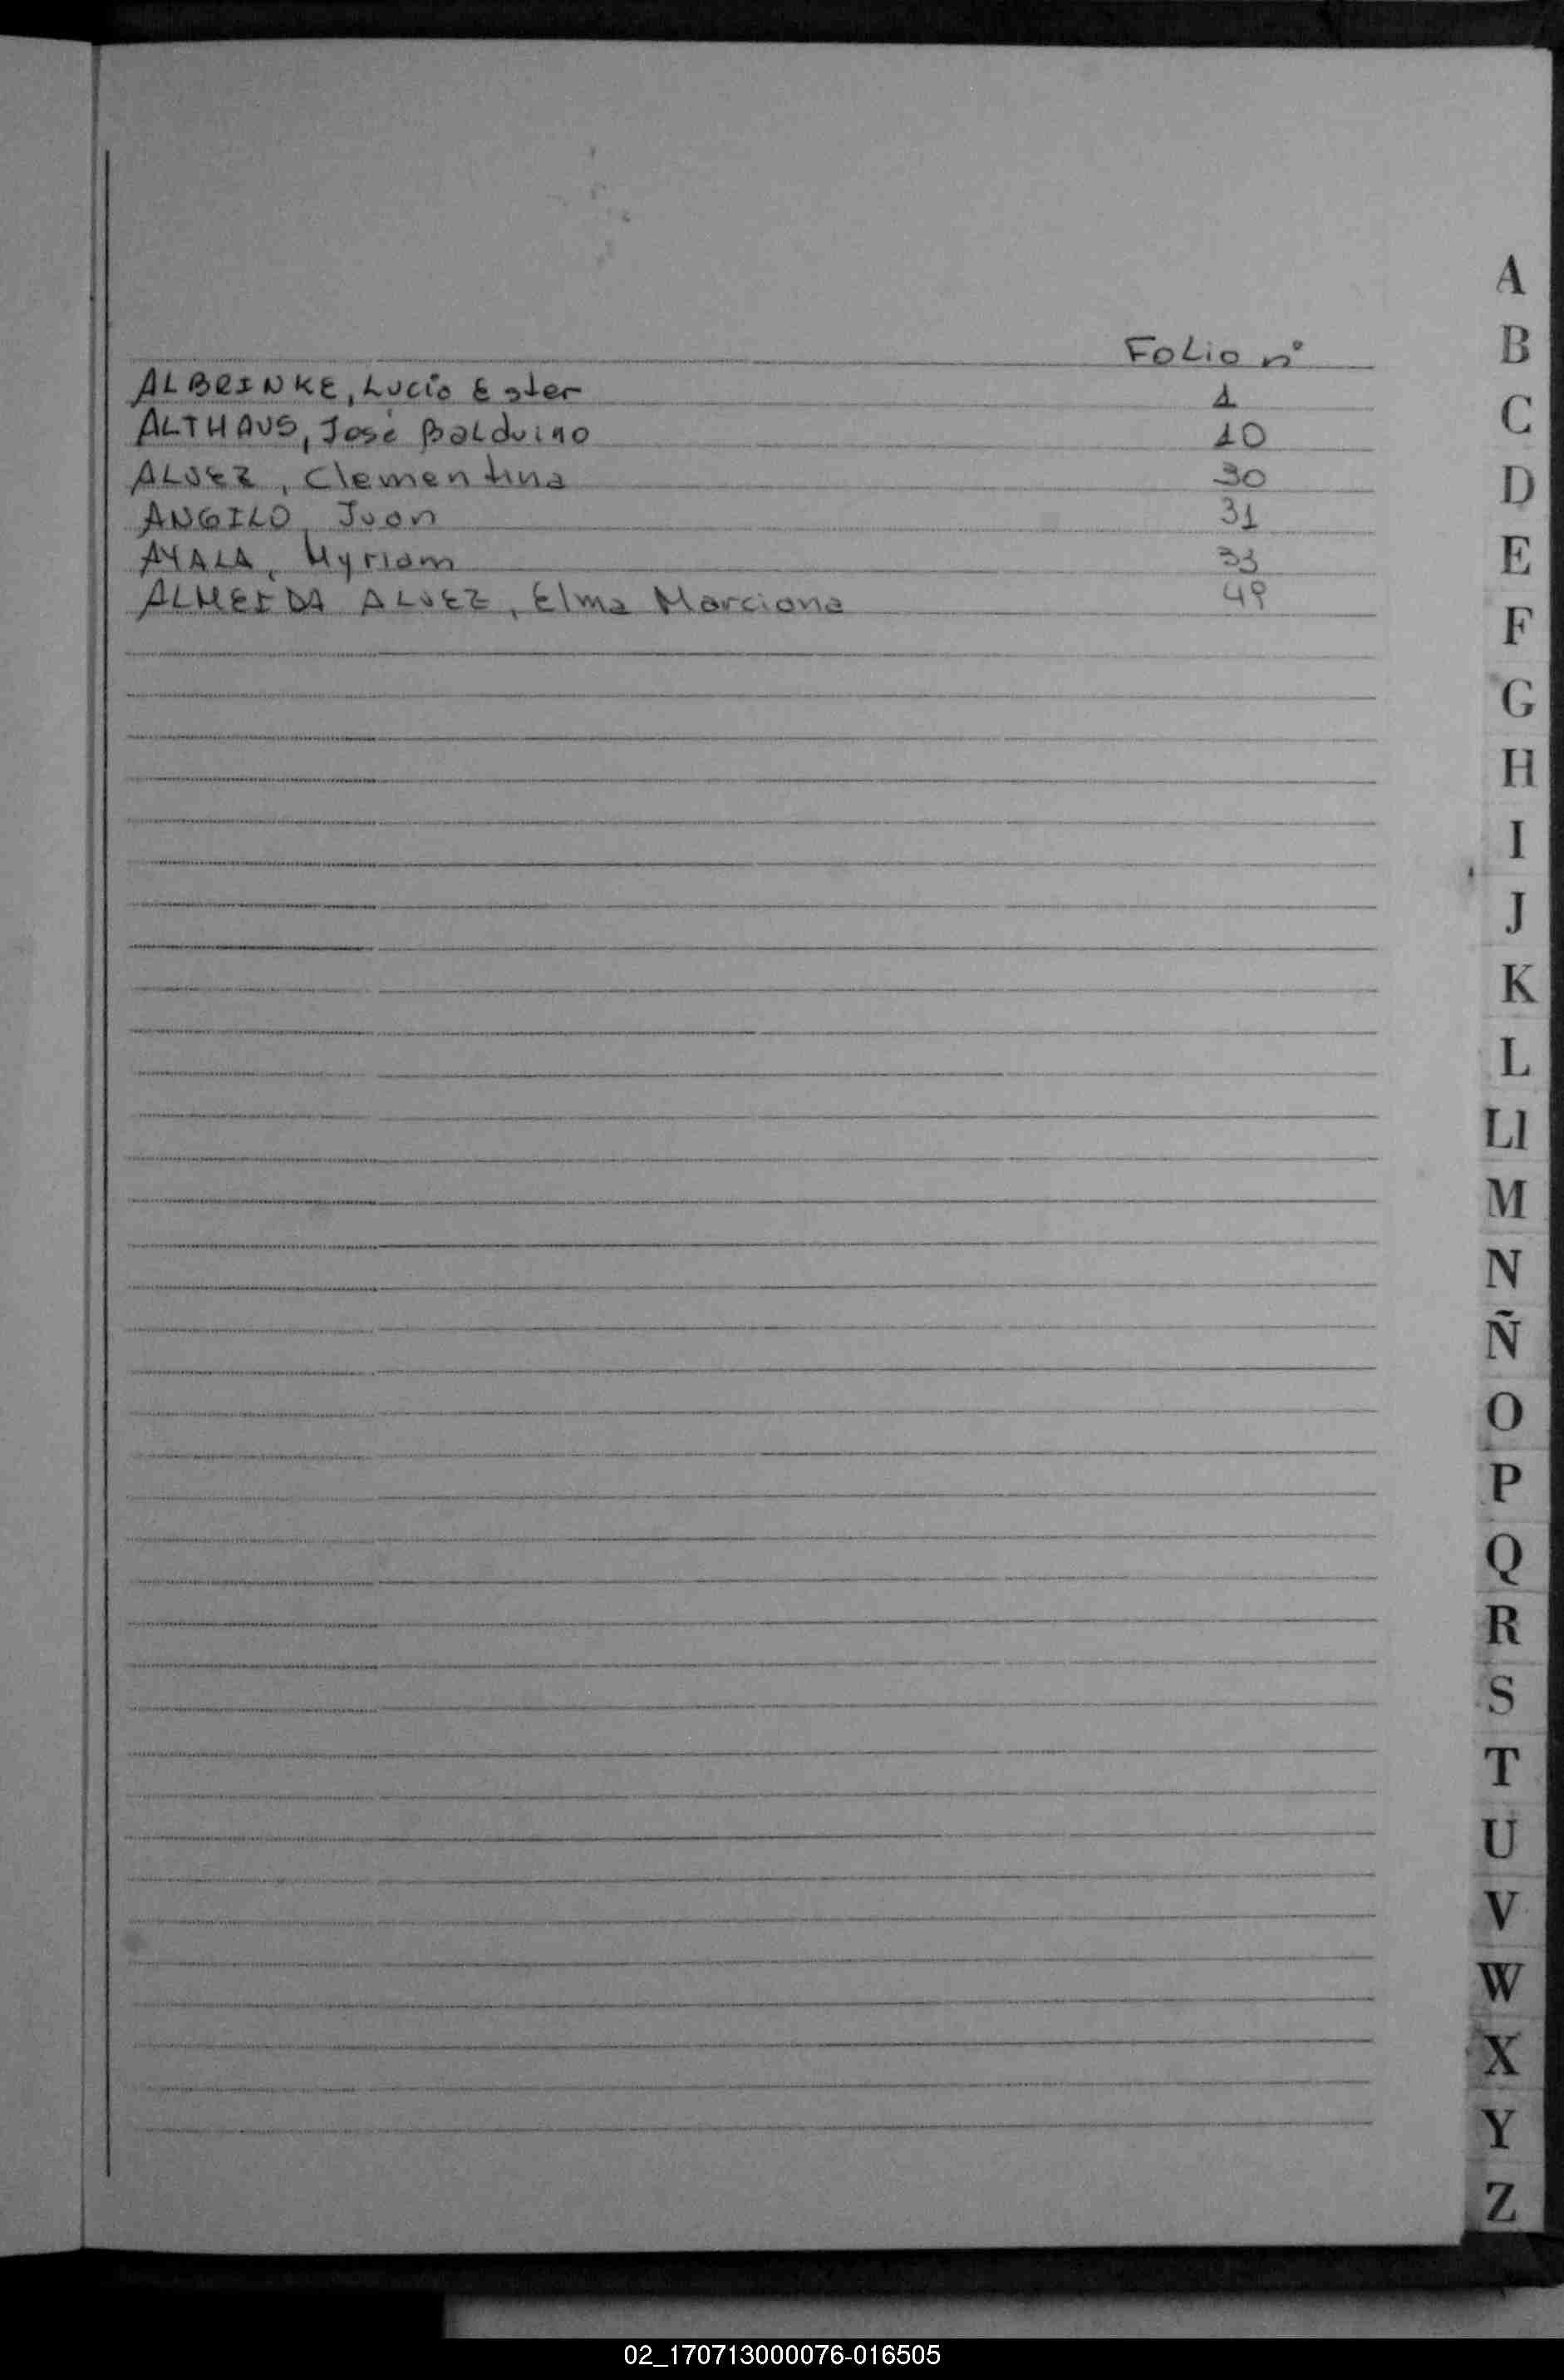 Folio nº
ALBRINKE, Lucía Ester 1
ALTHAUS, José Balduino 10
ALVEZ, Clementina 30
ANGILO, Juan 31
AYALA, Myriam 33
ALMEIDA ALVEZ, Elma Marciana 49
A
B
C
D
E
F
G
H
I
J
K
L
Ll
M
N
Ñ
O
P
Q
R
S
T
U
V
W
X
Y
Z
02_170713000076-016505